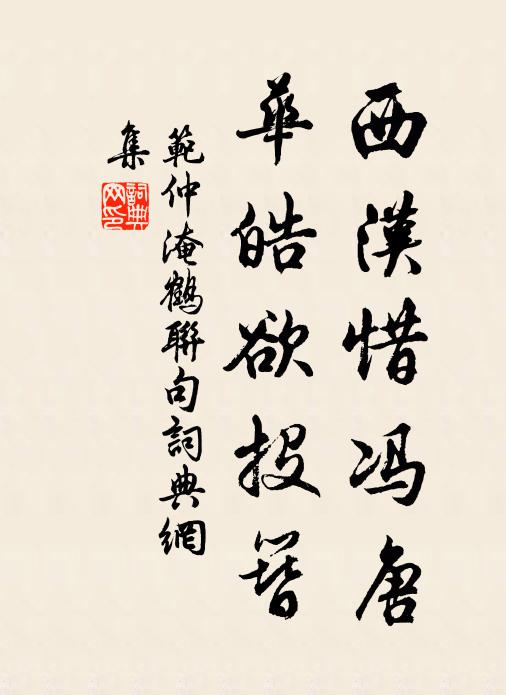 西漢惜冯唐
華皓欲投簪
範仲淹鶴聯句詞典網
集
詞典
网印